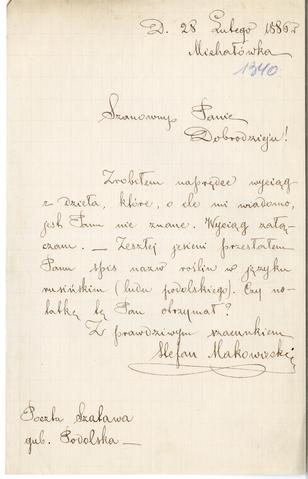 D. 28 Lutego 1886 r
Michałówka
1340.
Szanowny Panie
Dobrodzieju!
Zrobiłem naprędce wyciąg
z dzieła, które, o ile mi wiadomo,
jest Panu nie znane. Wyciąg załą-
czam. — Zeszłej jesieni przesłałem
Panu spis nazw roślin w języku
rusińskim (ludu podolskiego). Czy no-
tatkę tę Pan otrzymał?
Z prawdziwym szacunkiem
Stefan Makowiecki
Poczta Szatawa
gub. Podolska —